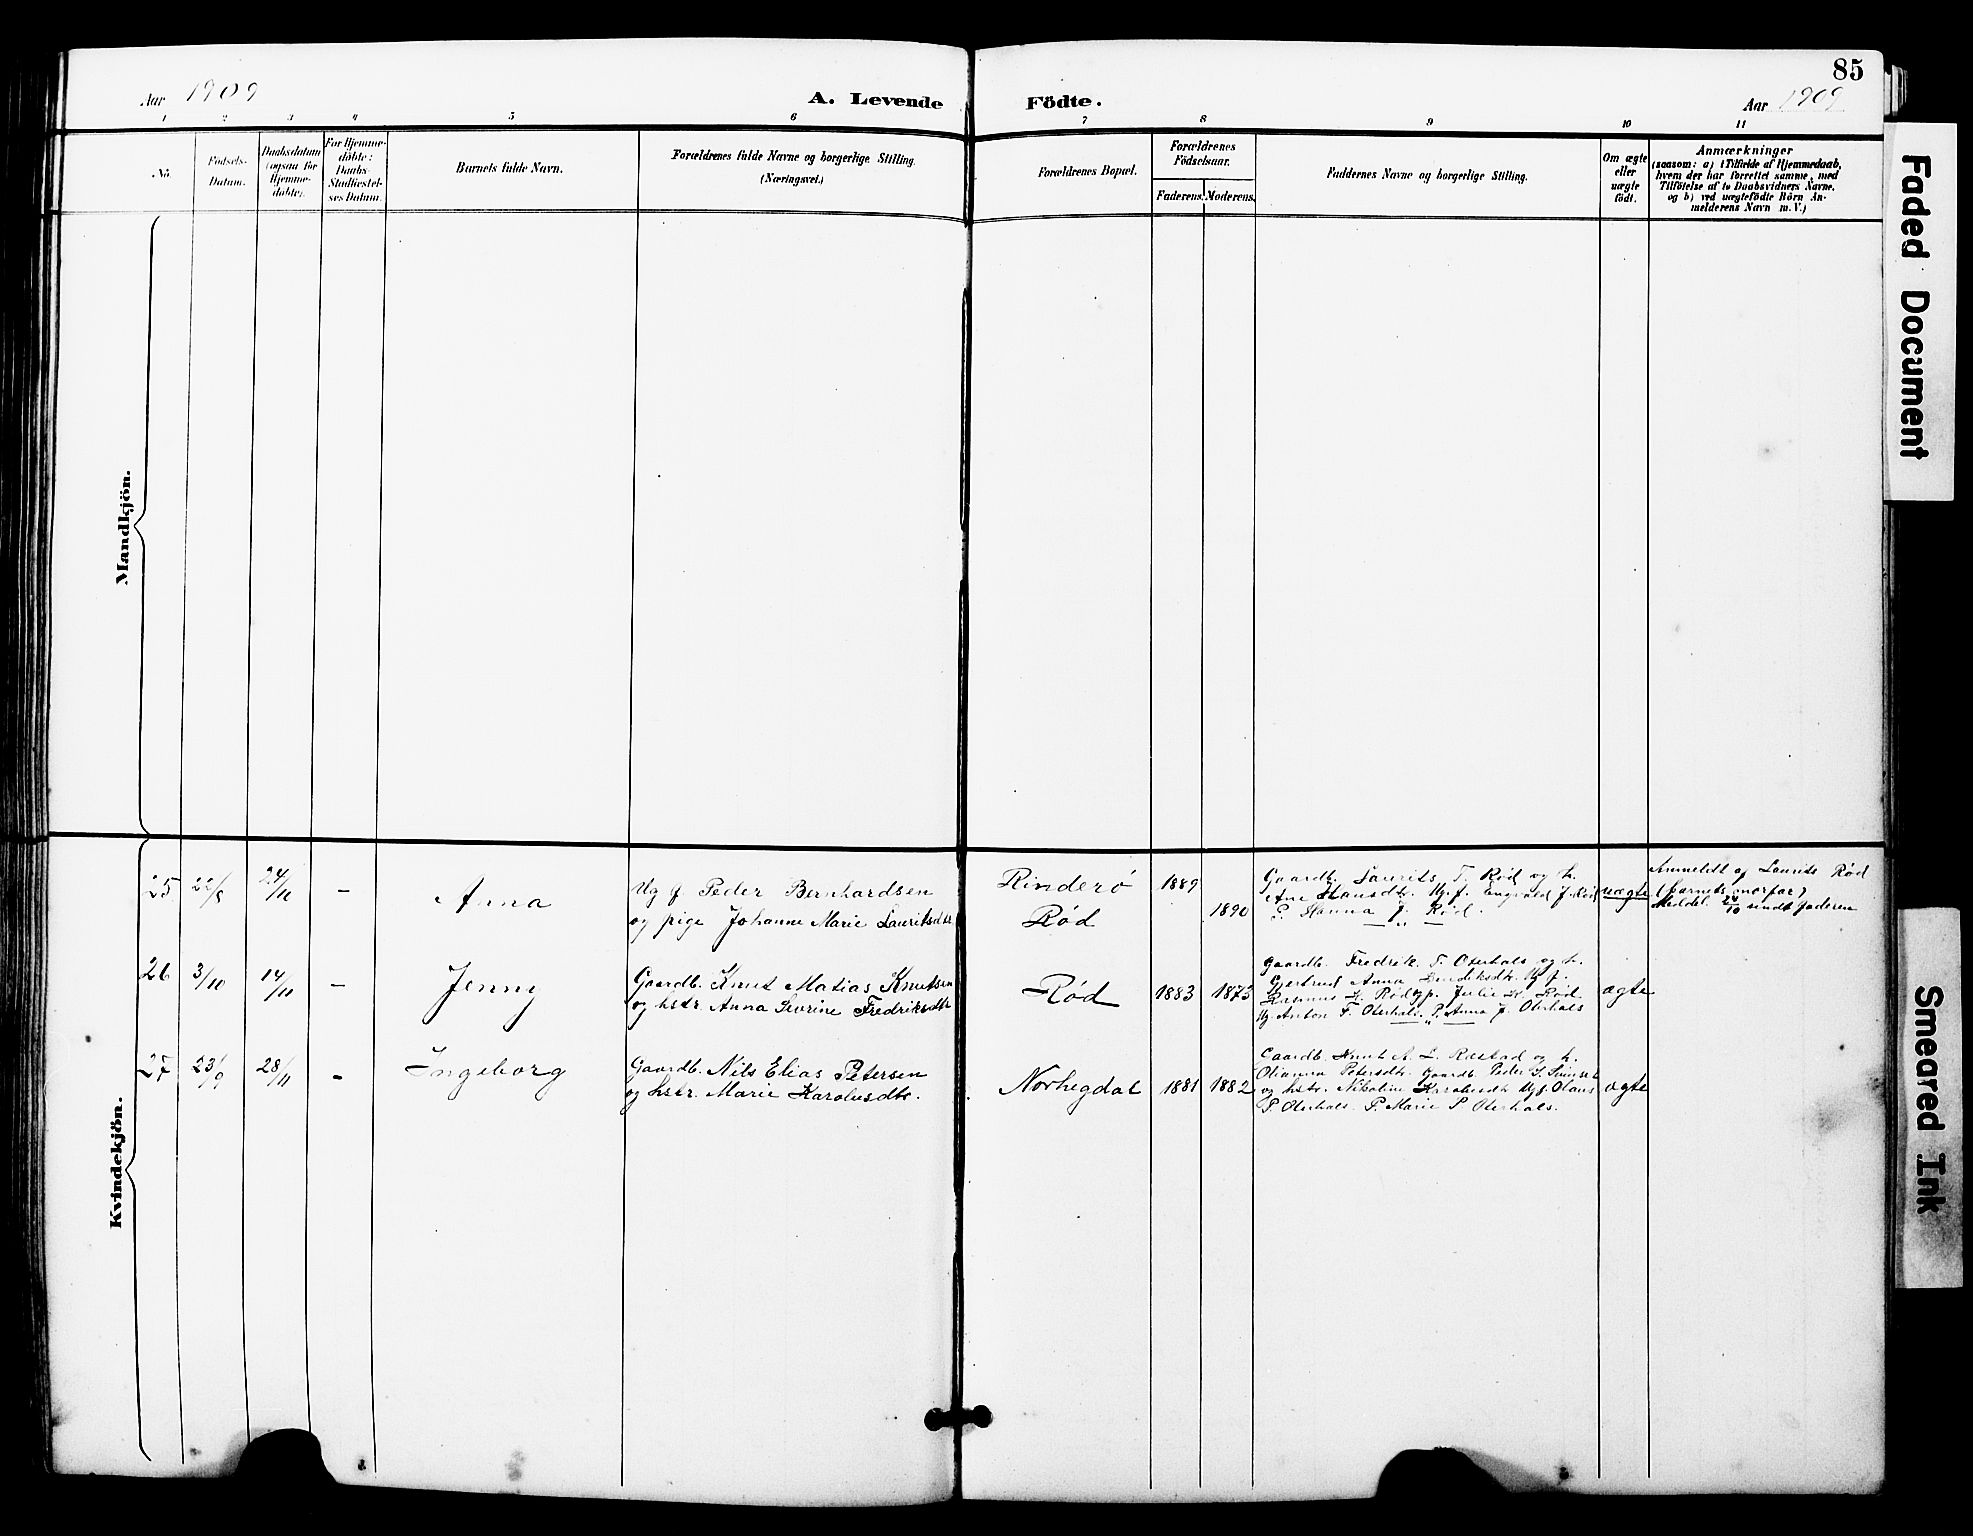 85
Aar 1909
A. Levende
Födte.
Aar 1909
1 2 3 4 5 6 7 8 9 10 11
No.
Födsels-
Datum.
Daabsdatum
(ogsaa for
Hjemme-
døbte).
For Hjemme-
døbte:
Daabs-
Stadfæstel-
ses Datum.
Barnets fulde Navn.
Forældrenes fulde Navne og borgerlige Stilling.
(Næringsvei.)
Forældrenes Bopæl.
Forældrenes
Födselsaar.
Faderens. Moderens.
Faddernes Navne og borgerlige Stilling.
Om ægte
eller
uægte
födt.
Anmærkninger
(saasom: a) i Tilfælde af Hjemmedaab,
hvem der har forrettet samme, med
Tilföielse af to Daabsvidners Navne.
og b) ved uægtefödte Börn An-
melderens Navn m. V.)
Mandkjön.
Kvindekjön.
25 22/8 24/10 –
Anna
Ug f Peder Bernhardsen
og pige Johanne Marie Lauritsdtr
Rinderö
Rød
1889
1890
Gaardb. Laurits T. Rød og h.
Ane Hansdtr. Ugf. Engvald J. Rød
P. Hanna J. Rød.
uægte
Anmeldt af Laurits Rød
(barnets morfar)
Meddel. 24/10 sendt faderen
26 3/10 14/11 –
Jenny
Gaardb. Knut Matias Knutsen
og hstr. Anna Severine Fredriksdtr
Rød
1883 1873
Gaardb. Fredrik T. Oterhals og h.
Gjertrud Anna
Rasmus K. Rød Julie K. Rød
Ug. Anton F. Oterhals. P. Anna F. Oterhals
ægte
27 23/9 28/11 –
Ingeborg
Gaardb. Nils Elias Petersen
og hstr. Marie Karolusdtr.
Norhegdal
1881 1882
Gaardb. Knut A. L. Ræstad og h.
Olianna Petersdtr. Gaardb. Peder
og hstr. Nikoline Karolusdtr Ugf. Olaus
P. Oterhals. P. Marie P. Oterhals.
ægte
Faded Document
Smeared Ink